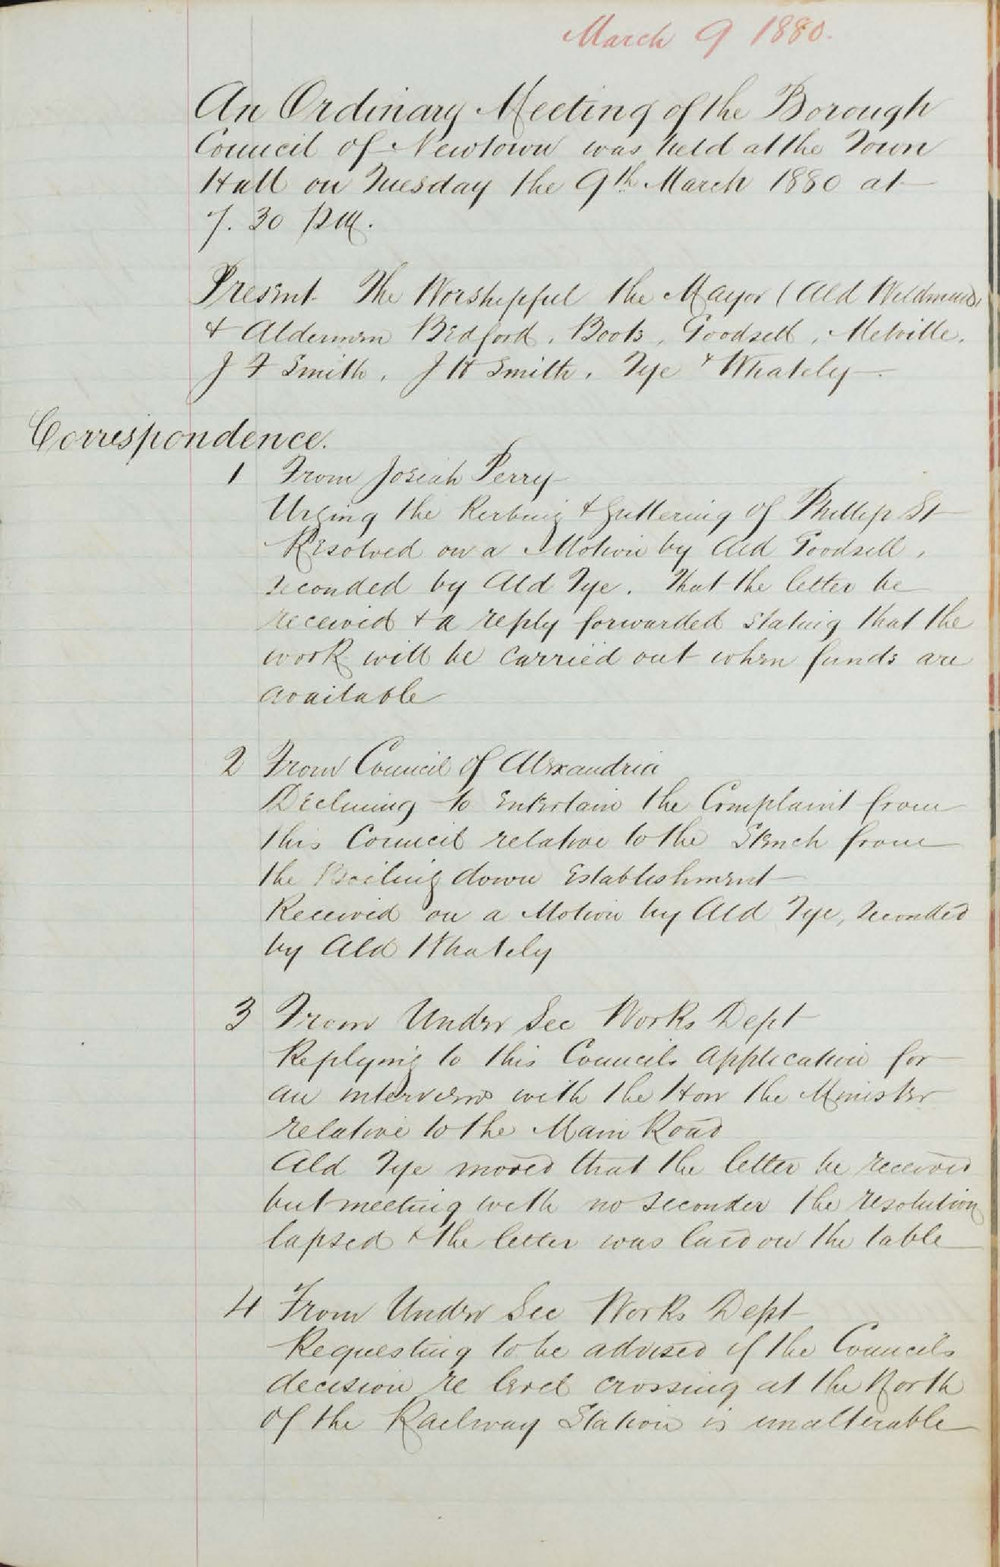 March 9 1880.
An Ordinary Meeting of the Borough
Council of Newtown was held at the Town
Hall on Tuesday the 9th March 1880 at
7.30 P.M.
Present The Worshipful the Mayor (Ald Wildman)
& Aldermen Bedford, Boots, Goodsell, Melville,
J F Smith, J H Smith, Tye & Whately
Correspondence.
1 From Josiah Perry
Urging the Kerbing & Guttering of Phillip St
Resolved on a Motion by Ald Goodsell,
seconded by Ald Tye. That the letter be
received & a reply forwarded stating that the
work will be carried out when funds are
available
2 From Council of Alexandria
Declining to entertain the Complaint from
this Council relative to the Stench from
the Boiling down Establishment
Received on a Motion by Ald Tye, seconded
by Ald Whately
3 From Under Sec Works Dept
Replying to this Councils application for
an interview with the Hon the Minister
relative to the Main Road
Ald Tye moved that the letter be received
but meeting with no seconder the resolution
lapsed & the letter was laid on the table
4 From Under Sec Works Dept
Requesting to be advised if the Councils
decision re level crossing at the North
of the Railway Station is unalterable